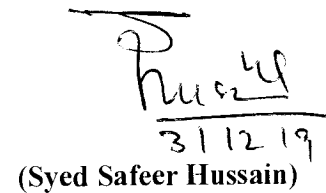 31 12 19
(Syed Safeer Hussain)